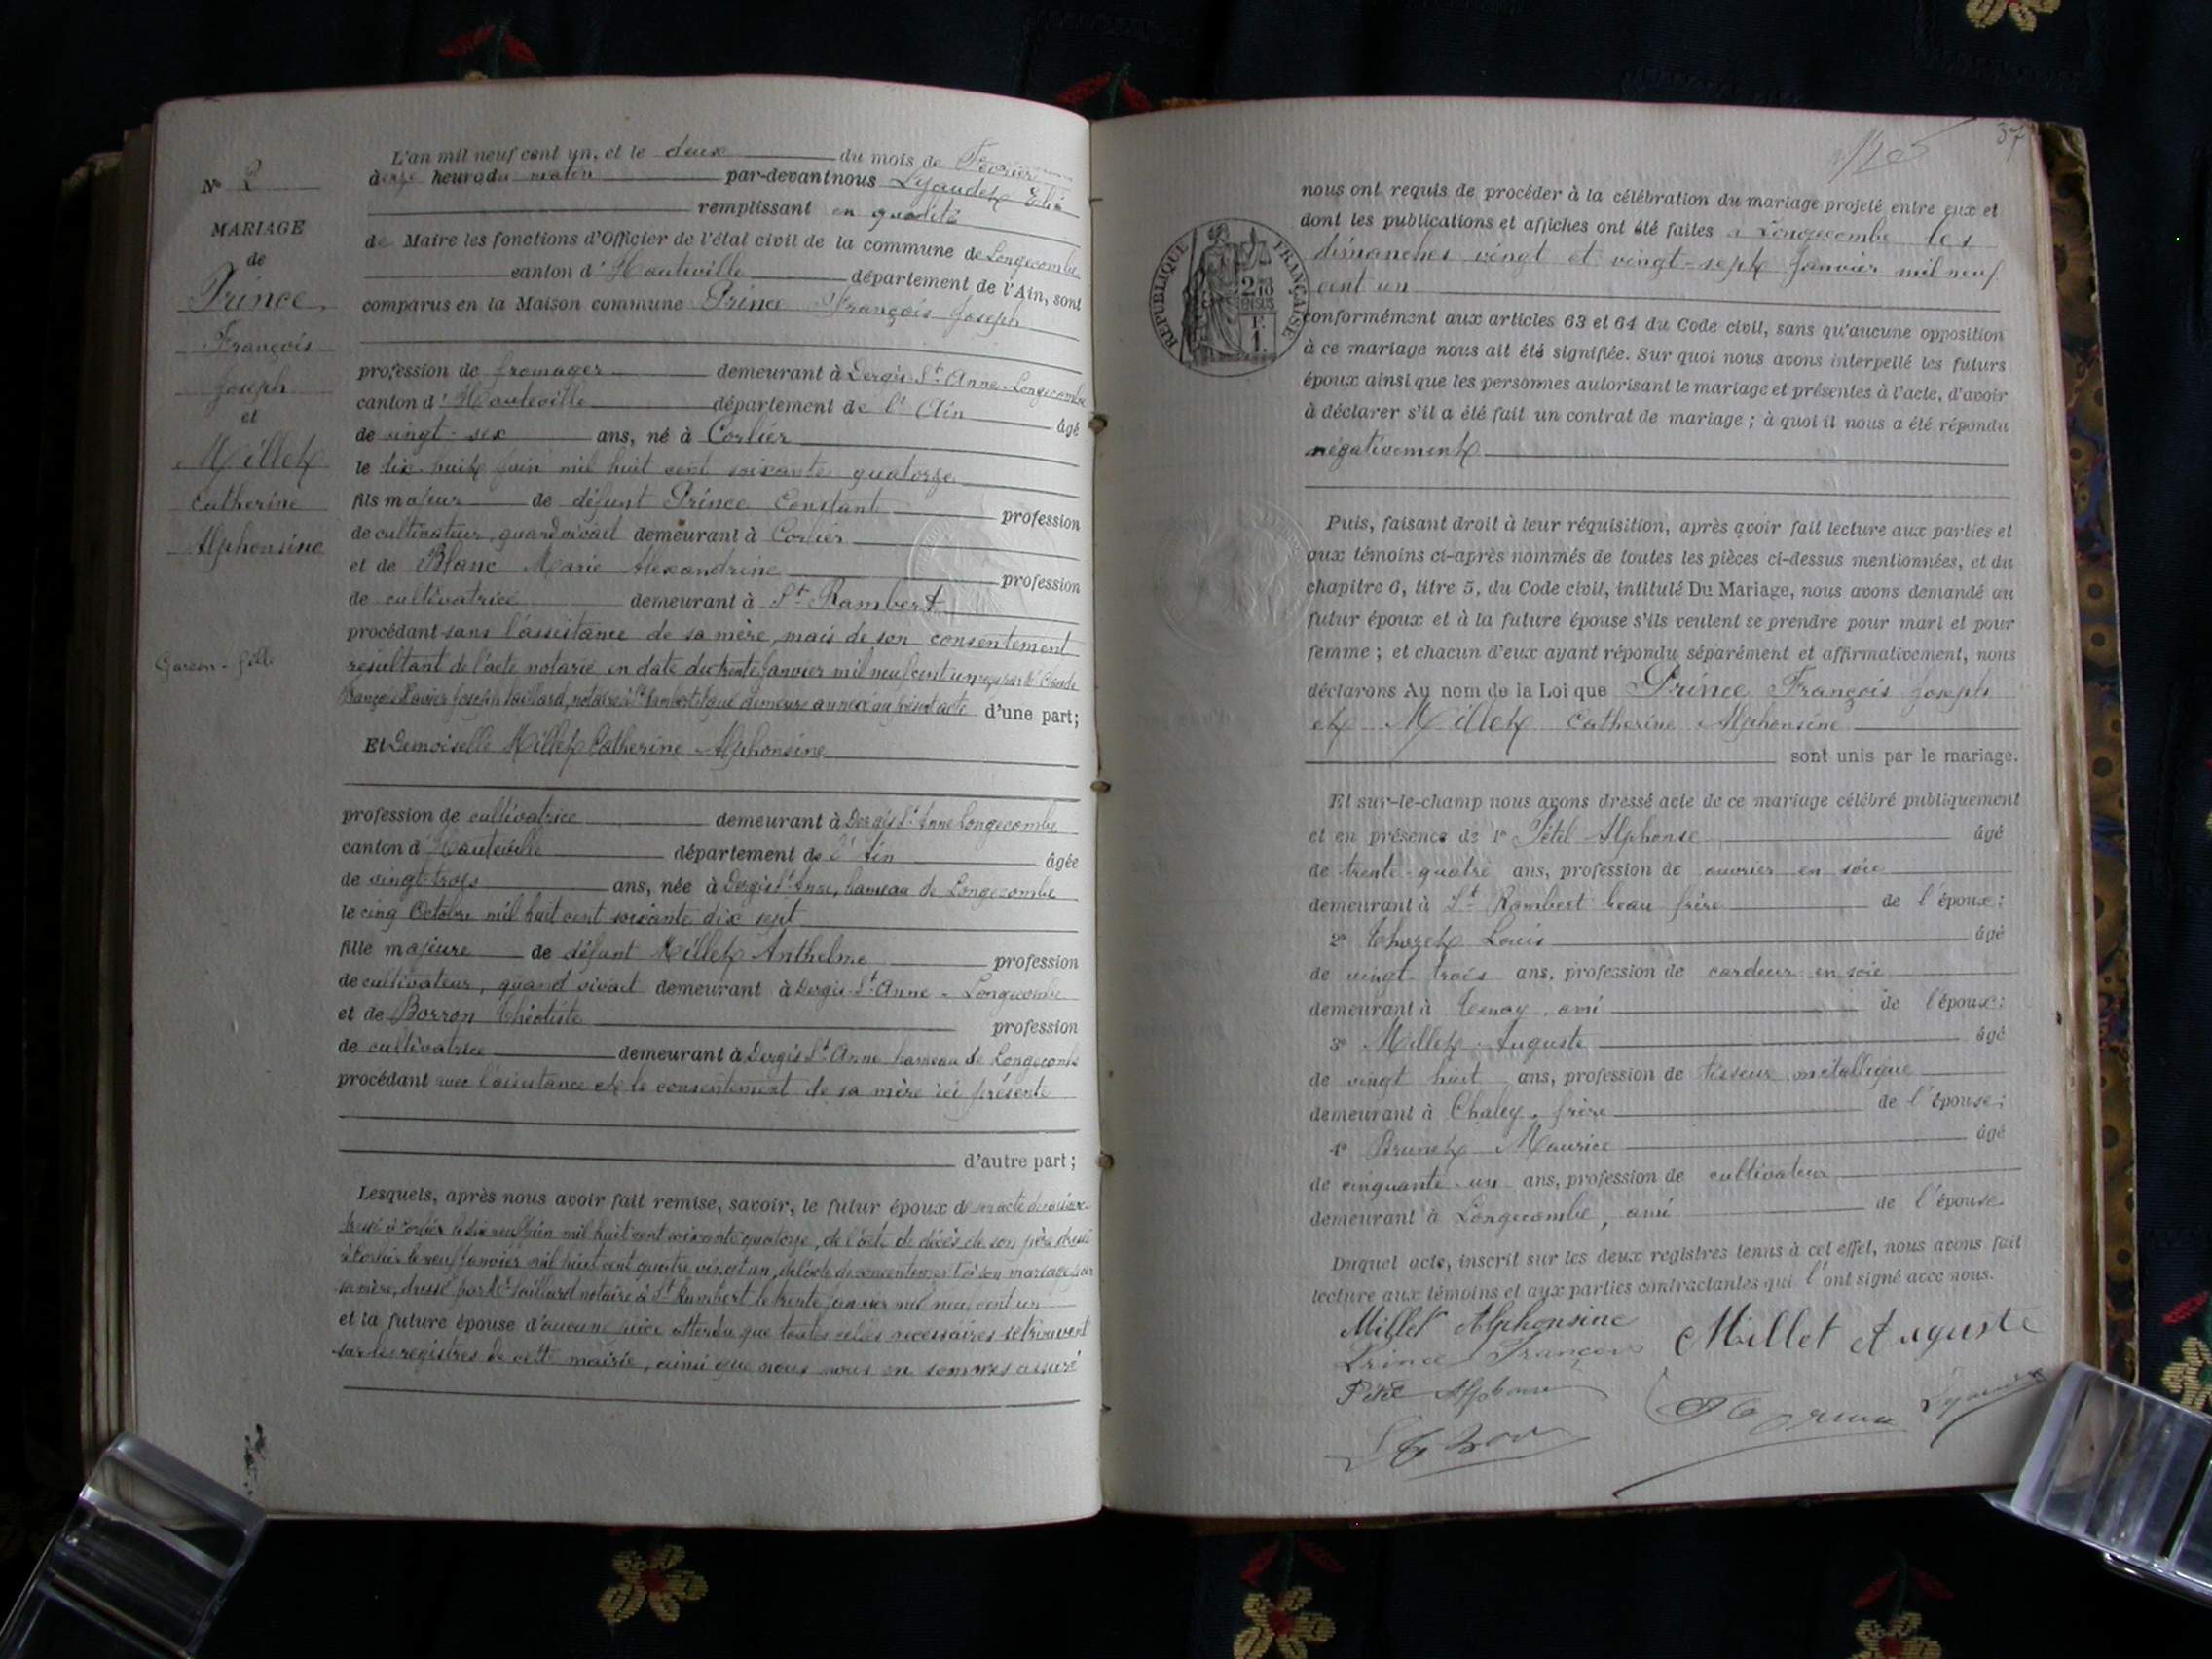 N° 2
MARIAGE
de
Prince
François
Joseph
et
Millet
Catherine
Alphonsine
Garçon - fille
L'an mil neuf cent un, et le deux du mois de Février
à onze heures du matin par-devant nous Lyaudet
remplissant en qualité
de Maire les fonctions d'Officier de l'état civil de la commune de Longecombe
canton d'Hauteville département de l'Ain, sont
comparus en la Maison commune Prince François Joseph
profession de fromager demeurant à Dergis St Anne-Longecombe
canton d'Hauteville département de l'Ain âgé
de vingt-six ans, né à Corlier
le dix huit juin mil huit cent soixante quatorze
fils majeur de défunt Prince Constant profession
de cultivateur, quand vivait demeurant à Corlier
et de Blanc Marie Alexandrine profession
de cultivatrice demeurant à St Rambert
procédant sans l'assistance de sa mère, mais de son consentement
résultant de l'acte notarié en date du trente Janvier mil neuf cent un reçu par Me Claude
François Xavier Joseph Saillard, notaire à St Rambert lequel demeure annexé au présent acte d'une part;
Et Demoiselle Millet Catherine Alphonsine
profession de cultivatrice demeurant à Dergis St Anne Longecombe
canton d'Hauteville département de l'Ain âgée
de vingt-trois ans, née à Dergis St Anne, hameau de Longecombe
le cinq Octobre mil huit cent soixante dix sept
fille majeure de défunt Millet Anthelme profession
de cultivateur, quand vivait demeurant à Dergis St Anne - Longecombe
et de Borron Théotiste profession
de cultivatrice demeurant à Dergis St Anne hameau de Longecombe
procédant avec l'assistance et le consentement de sa mère ici présente
d'autre part;
Lesquels, après nous avoir fait remise, savoir, le futur époux de son acte de naissance
dressé à Corlier le dix neuf Juin mil huit cent soixante quatorze, de l'acte de décès de son père dressé
à Corlier le neuf Janvier mil huit cent quatre vingt un, de l'acte de consentement à son mariage par
sa mère, dressé par Me Saillard notaire à St Rambert le trente Janvier mil neuf cent un
et la future épouse d'aucune pièce attendu que toutes celles nécessaires se trouvent
sur les registres de cette mairie, ainsi que nous nous en sommes assuré
37
nous ont requis de procéder à la célébration du mariage projeté entre eux et
dont les publications et affiches ont été faites à Longecombe les
dimanches vingt et vingt-sept Janvier mil neuf
cent un
RÉPUBLIQUE FRANÇAISE
conformément aux articles 63 et 64 du Code civil, sans qu'aucune opposition
à ce mariage nous ait été signifiée. Sur quoi nous avons interpellé les futurs
époux ainsi que les personnes autorisant le mariage et présentes à l'acte, d'avoir
à déclarer s'il a été fait un contrat de mariage; à quoi il nous a été répondu
négativement
Puis, faisant droit à leur réquisition, après avoir fait lecture aux parties et
aux témoins ci-après nommés de toutes les pièces ci-dessus mentionnées, et du
chapitre 6, titre 5, du Code civil, intitulé Du Mariage, nous avons demandé au
futur époux et à la future épouse s'ils veulent se prendre pour mari et pour
femme; et chacun d'eux ayant répondu séparément et affirmativement, nous
déclarons Au nom de la Loi que Prince François Joseph
et Millet Catherine Alphonsine
sont unis par le mariage.
Et sur-le-champ nous avons dressé acte de ce mariage célébré publiquement
et en présence de 1° Pétil Alphonse âgé
de trente-quatre ans, profession de ouvrier en soie
demeurant à St Rambert beau frère de l'époux;
2° Louis âgé
de vingt trois ans, profession de cardeur en soie
demeurant à Tenay, ami de l'époux;
3° Millet Auguste âgé
de vingt huit ans, profession de tisseur métallique
demeurant à Chaley, frère de l'épouse;
4° Brunet Maurice âgé
de cinquante un ans, profession de cultivateur
demeurant à Longecombe, ami de l'épouse
Duquel acte, inscrit sur les deux registres tenus à cet effet, nous avons fait
lecture aux témoins et aux parties contractantes qui l'ont signé avec nous.
Millet Alphonsine
Prince François Millet Auguste
Pétil Alphonse